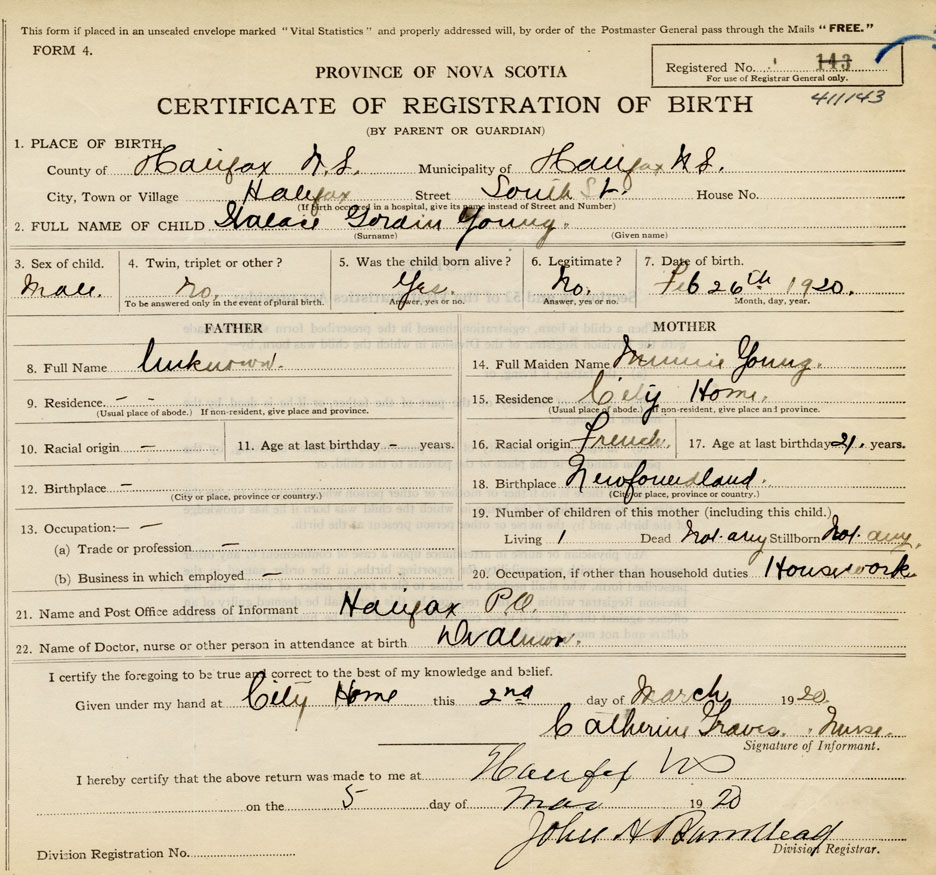 This form if placed in an unsealed envelope marked "Vital Statistics" and properly addressed will, by order of the Postmaster General pass through the Mails "FREE."
FORM 4.
Registered No. 143
For use of Registrar General only.
PROVINCE OF NOVA SCOTIA
411143
CERTIFICATE OF REGISTRATION OF BIRTH
(BY PARENT OR GUARDIAN)
1. PLACE OF BIRTH.
County of Halifax N.S. Municipality of Halifax N.S.
City, Town or Village Halifax Street South St. House No.
(If birth occurred in a hospital, give its name instead of Street and Number)
2. FULL NAME OF CHILD Walace Gordin Young.
(Surname) (Given name)
3. Sex of child. 4. Twin, triplet or other? 5. Was the child born alive? 6. Legitimate? 7. Date of birth.
Male. No. Yes. No. Feb 26th 1920.
To be answered only in the event of plural birth. Answer, yes or no. Answer, yes or no. Month, day, year.
FATHER MOTHER
8. Full Name Unknown. 14. Full Maiden Name Minnie Young.
9. Residence. - - 15. Residence City Home.
(Usual place of abode.) If non-resident, give place and province. (Usual place of abode.) If non-resident, give place and province.
10. Racial origin - 11. Age at last birthday - years. 16. Racial origin French. 17. Age at last birthday 21. years.
12. Birthplace - 18. Birthplace Newfoundland.
(City or place, province or country.) (City or place, province or country.)
13. Occupation:— - 19. Number of children of this mother (including this child.)
(a) Trade or profession. - Living 1 Dead Not any Stillborn Not any.
(b) Business in which employed - 20. Occupation, if other than household duties Housework
21. Name and Post Office address of Informant Halifax P.O.
22. Name of Doctor, nurse or other person in attendance at birth Dr
I certify the foregoing to be true and correct to the best of my knowledge and belief.
Given under my hand at City Home this 2nd day of March 1920.
Catherine Graves. Nurse.
Signature of Informant.
I hereby certify that the above return was made to me at Halifax NS
on the 5 day of Mar 1920
John A
Division Registrar.
Division Registration No.